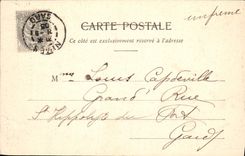 CARTE POSTALE
Ce côté est exclusivement réservé à l'adresse
imprimé
Louis Capdeville
Grand' Rue
St Hippolyte du Fort
Gard